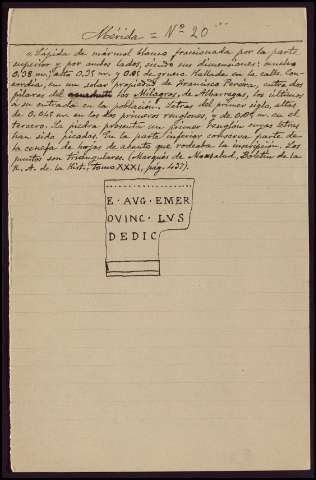 Mérida = Nº 20
"Lápida de mármol blanco fraccionada por la parte
superior y por ambos lados, siendo sus dimensiones: ancho
0,38 m; alto 0,35 m. y 0,05 de grueso. Hallada en la calle Con-
cordia, en un solar propiedad de Francisco Pereira, entre dos
pilares del acueducto los Milagros, de Albarregas, los últimos
a su entrada en la población. Letras del primer siglo, altas
de 0,045 m en los dos primeros renglones, y de 0,04 m. en el
tercero. La piedra presenta un primer renglón cuyas letras
han sido picadas. En la parte inferior conserva parte de
la cenefa de hojas de acanto que rodeaba la inscripción. Los
puntos son triangulares. (Marqués de Monsalud, Boletín de la
R. A. de la Hist. Tomo XXXI, pág. 437).
E · AVG · EMER
OVINC · LVS
DEDIC